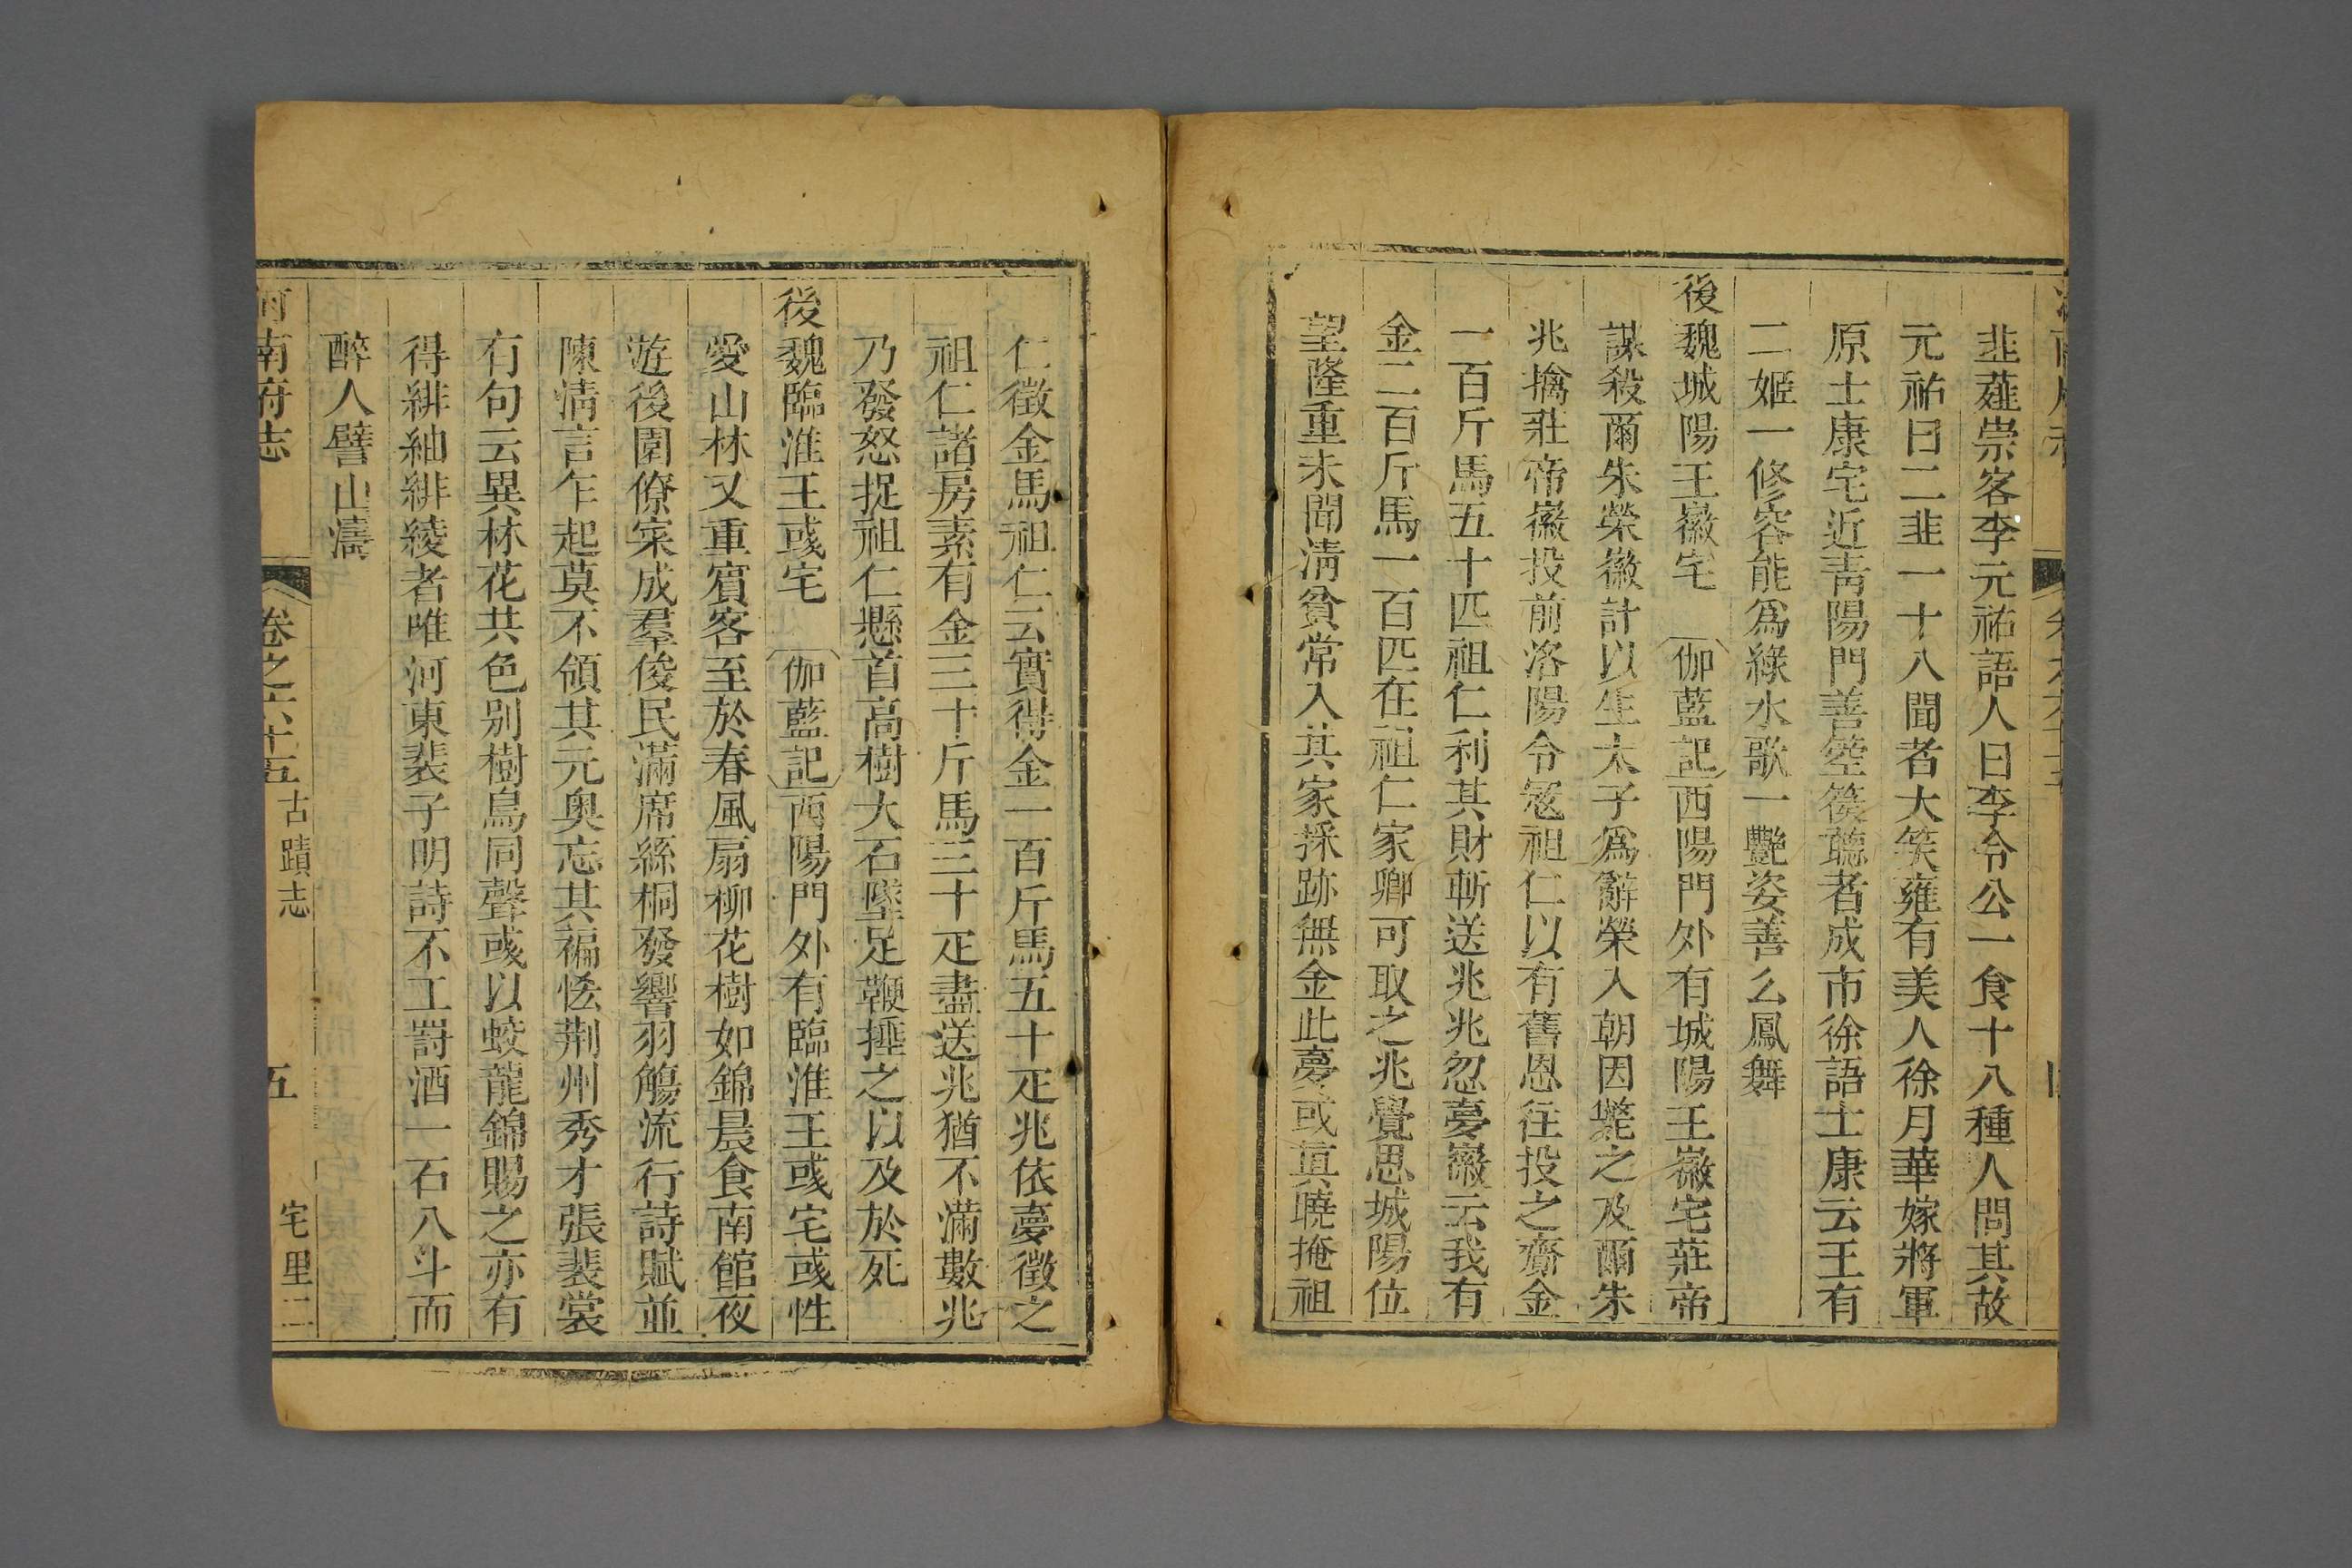 韭薤崇客李元祐語人曰李令公一食十八種人問其故
元祐曰二韭一十八聞者大笑雍有美人徐月華嫁將軍
原士康宅近靑陽門善箜篌聽者成市徐語士康云王有
二姬一修容能爲綠水歌一艷姿善么鳳舞
後魏城陽王徽宅 伽藍記西陽門外有城陽王徽宅莊帝
謀殺爾朱榮徽計以生太子爲辭榮入朝因斃之及爾朱
兆擒莊帝徽投前洛陽令寇祖仁以有舊恩往投之齎金
一百斤馬五十匹祖仁利其財斬送兆兆忽夢徽云我有
金二百斤馬一百匹在祖仁家卿可取之兆覺思城陽位
望隆重未聞淸貧常入其家採跡無金此夢或眞曉掩祖
仁徵金馬祖仁云實得金一百斤馬五十疋兆依夢徵之
祖仁諸房素有金三十斤馬三十疋盡送兆猶不滿數兆
乃發怒捉祖仁懸首高樹大石墜足鞭捶之以及於死
後魏臨淮王彧宅 伽藍記西陽門外有臨淮王彧宅彧性
愛山林又重賓客至於春風扇柳花樹如錦晨食南館夜
遊後園僚寀成羣俊民滿席絲桐發響羽觴流行詩賦並
陳淸言乍起莫不領其元奥忘其褊恡荆州秀才張裴裳
有句云異林花共色别樹鳥同聲彧以蛟龍錦賜之亦有
得緋紬緋綾者唯河東裴子明詩不工罸酒一石八斗而
醉人譬山濤
河南府志 卷之六十五 古蹟志 五 宅里二